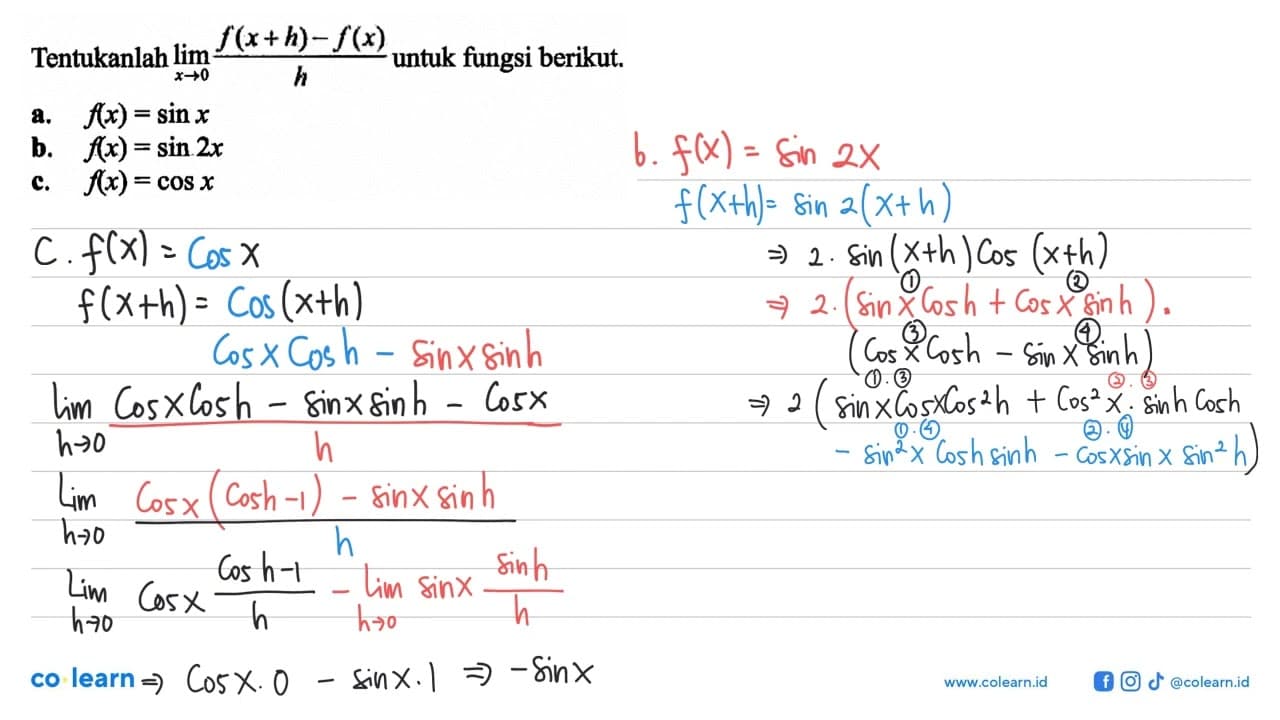 Tentukanlah lim x→0 f(x+h)−f(x) / h untuk fungsi berikut.
a. f(x) = sin x
b. f(x) = sin 2x
c. f(x) = cos x
C. f(x) = Cos x
f(x+h) = Cos (x+h)
Cos x Cos h − sin x sin h
lim h→0 Cos x Cos h − sin x sin h − Cos x / h
Lim h→0 Cos x (Cos h −1) − sin x sin h / h
Lim h→0 Cos x Cos h −1 / h − Lim h→0 sin x sin h / h
⇒ Cos x . 0 − sin x . 1 ⇒ − sin x
b. f(x) = sin 2x
f(x+h) = sin 2(x+h)
⇒ 2 . sin (x+h) Cos (x+h)
① ②
⇒ 2. (sin x Cos h + Cos x sin h ) .
③ ④
(Cos x Cos h − sin x sin h)
①.③ ②.③
⇒ 2 ( sin x Cos x Cos² h + Cos² x . sin h Cos h
①.④ ②.④
− sin² x Cos h sin h − Cos x sin x sin² h )
co learn
www.colearn.id
@colearn.id